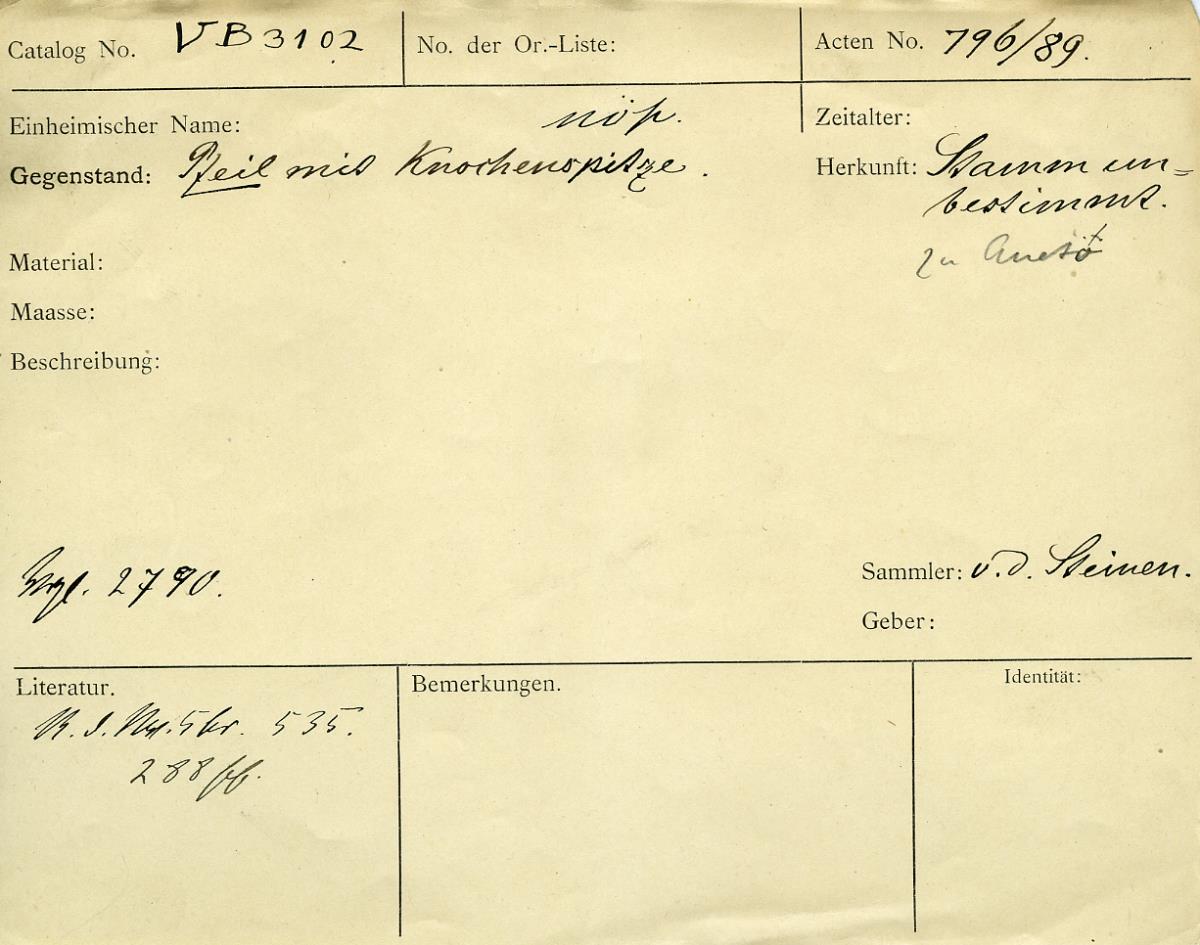 Catalog No. VB 3102
No. der Or.-Liste:
Acten No. 796/89.
Einheimischer Name: nöp.
Zeitalter:
Gegenstand: Pfeil mit Knochenspitze.
Herkunft: Stamm un=
bestimmt.
zu Auetö
Material:
Maasse:
Beschreibung:
Vrgl. 2790.
Sammler: v. d. Steinen.
Geber:
Literatur.
Bemerkungen.
Identität:
535.
288 ff.